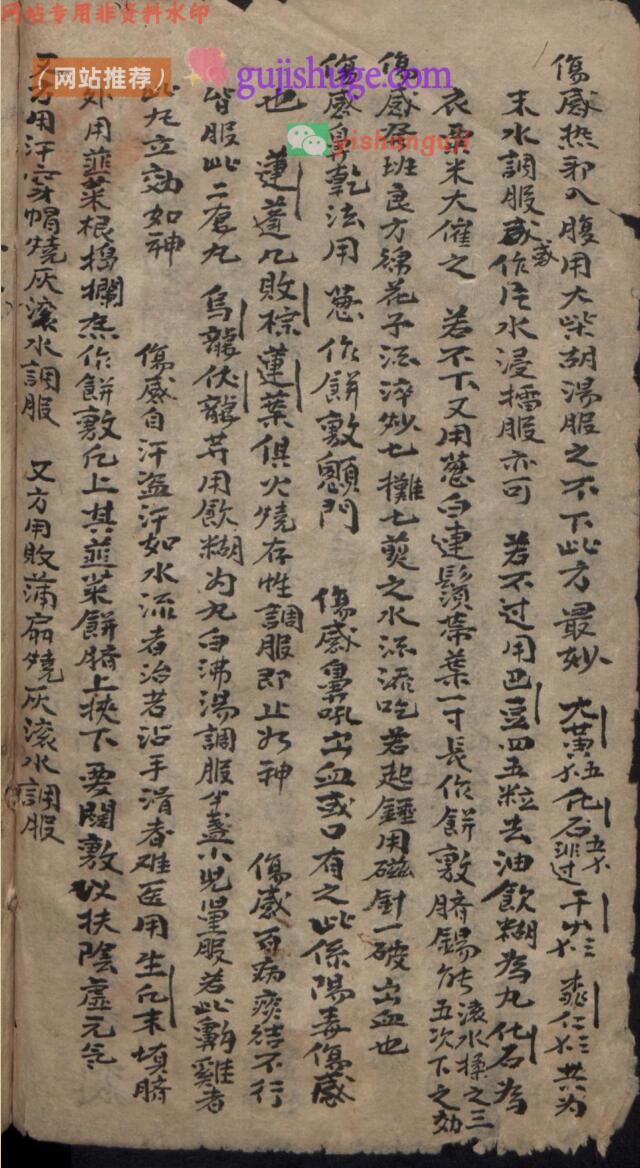 网站专用非资料水印
（网站推荐）
gujishuge.com
yishanguji
傷感热邪入腹用大柴胡湯服之不下此方最妙 大黃 五 化石 过 五 干 三 桃仁 三 共为
末水調服或作片水浸擂服亦可 若不过用巴豆四五粒去油飲糊為九 化石為
衣吞米大催之 若不下又用葱白連鬚帶葉一寸長作餅敷臍 滾水揉之三五次下之効
傷感發班良方綿花子 淬炒七攤七 之水 吃若起 用磁針一破出血也
傷感鼻乾法用葱作餅敷顖門 傷感鼻吼出血或口有之此係陽毒傷感
也 蓮蓬 敗棕 蓮葉俱火燒存性調服即止如神 傷感百病痰结不行
皆服此二 九 烏龍伏龍 用飲糊为九白沸湯調服半盞小兒量服若此 雞者
此九立効如神 傷感自汗盗汗如水流者治若沾手滑者难医用生 末填臍
用韮菜根搗爛 作餅敷 上其韮菜餅臍上挾下要闊敷以扶陰虛元气
又方用汗 帽燒灰滾水調服 又方用败蒲扇燒灰滾水調服